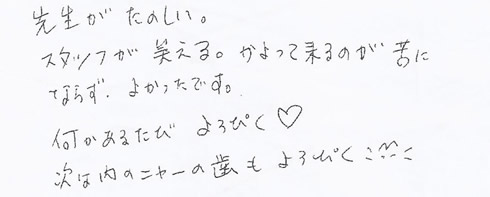 先生がたのしい。
スタッフが笑える。かよって来るのが苦に
ならず、よかったです。
何かあるたび よろぴく♡
次は内のニャーの歯も よろぴく